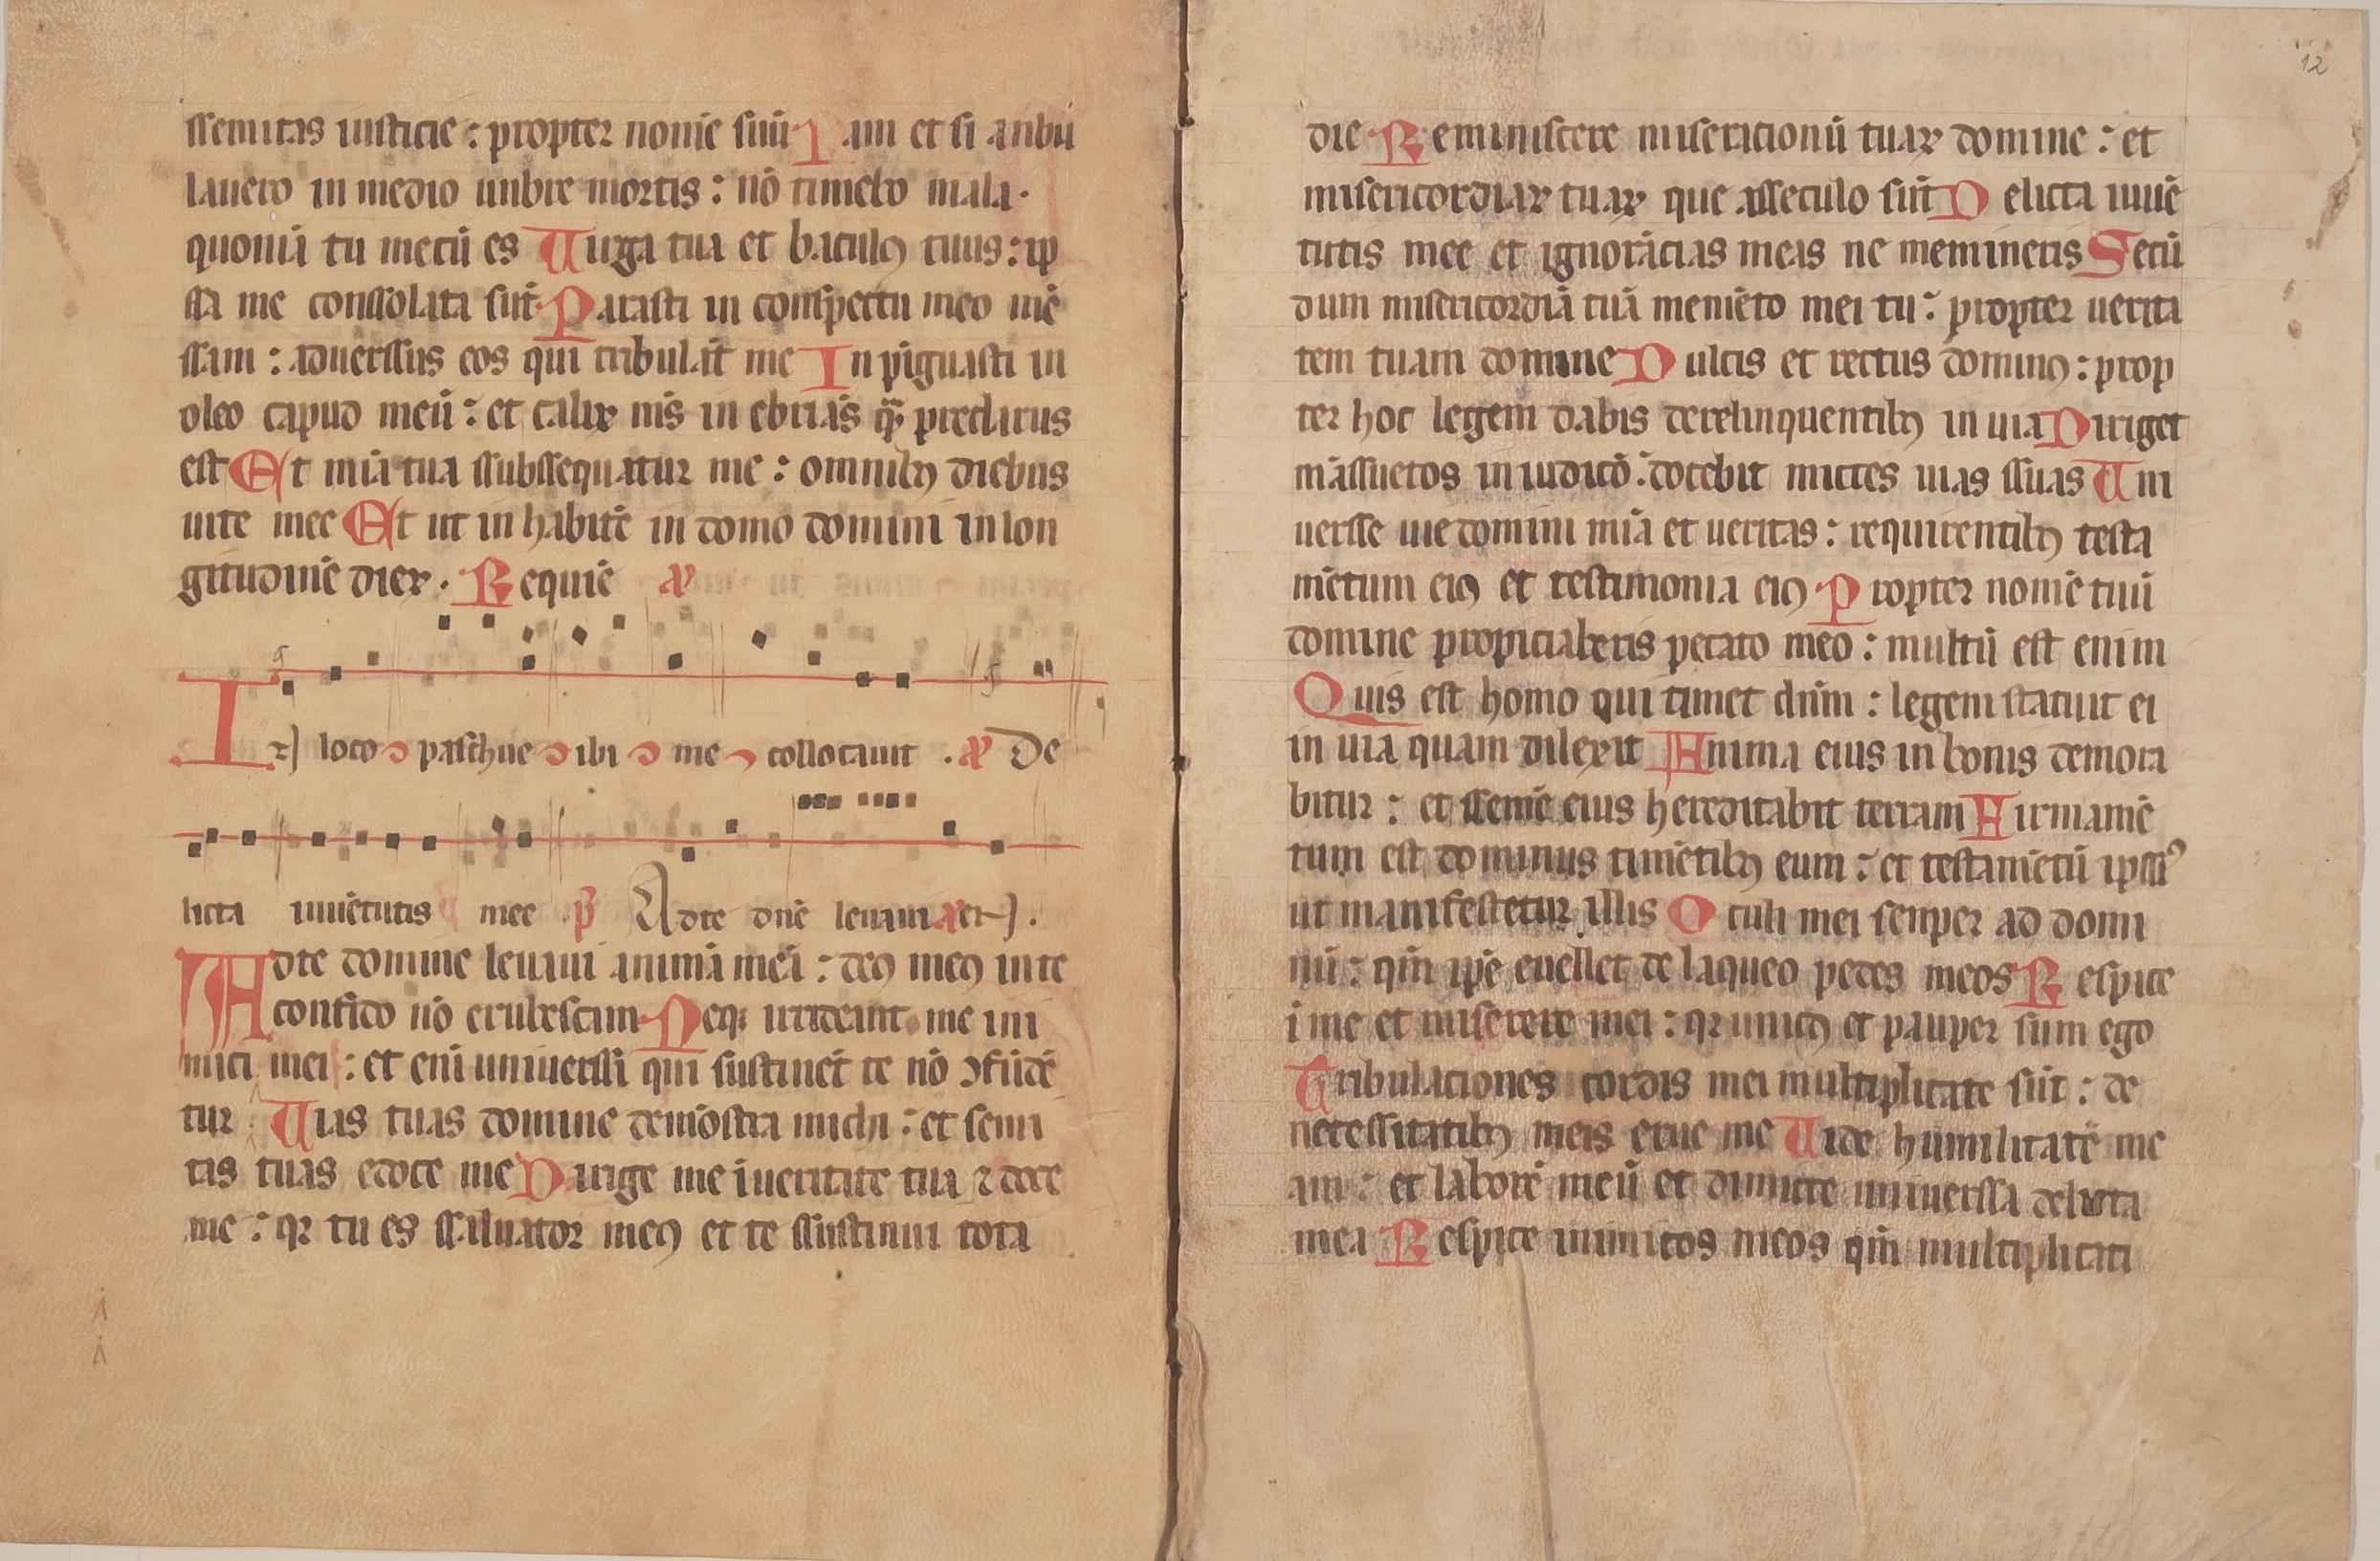 ssemitas iusticie : propter nomē suū Nam et si anbu
lauero in medio unbre mortis : nō timebo mala ·
quoniā tu mecū es Uirga tua et baculꝰ tuus : ip
ssa me conssolata sūt Parasti in conspectu meo mē
ssam : aduerssus eos qui tribulāt me In piguasti in
oleo capud meū : et calix mīs in ebriās qͣ̄ preclarus
est Et mīa tua ssubssequatur me : omnibꝰ diebus
uite mee Et ut in habitē in domo domini in lon
gitudinē dieꝝ · Requiē
In loco paschue ibi me collocauit · De
licta iuuētutis mee p̄ Adte dnē leuaui
Adte domine leuaui animā meā : deꝰ meꝰ inte
confido nō erubescam Neqꝫ irrideant me ini
mici mei : et enī uniuerssi qui sustinēt te nō ↄfūdē
tur Uias tuas domine demōstra michi : et semi
tis tuas edoce me Dirige me ī ueritate tua ⁊ doce
me : qꝛ tu es ssaluator meꝰ et te ssustinui tota
12
die Reminiscere miseracionū tuaꝝ domine : et
misericordiaꝝ tuaꝝ que asseculo sūt Delicta iuuē
tutis mee et ignorācias meas ne memineris Secū
dum misericordiā tuā memēto mei tu : propter uerita
tem tuam domine Dulcis et rectus dominꝰ : prop
ter hoc legem dabis derelinquentibꝰ in uia Diriget
māssuetos in iudicō : docebit mittes uias ssuas Uni
uersse uie domini mīa et ueritas : requirentibꝰ testa
mētum eiꝰ et testimonia eiꝰ Propter nomē tuū
domine propiciaberis pecato meo : multū est enim
Quis est homo qui timet dn̄m : legem statuit ei
in uia quam dilexit Anima eius in bonis demora
bitur : et ssemē eius hereditabit terram Firmamē
tum est dominus timētibꝰ eum : et testamētū ipssiꝰ
ut manifestetur illis Oculi mei senper ad domi
nū : qm̄ ipē euellet de laqueo pedes meos Respice
ī me et miserere mei : qꝛ unicꝰ et pauper sum ego
Tribulaciones cordis mei multiplicate sūt : de
necessitatibꝰ meis erue me Uide humilitatē me
am : et laborē meū et dimitte uniuerssa delicta
mea Respice inimicos meos qm̄ multiplicati